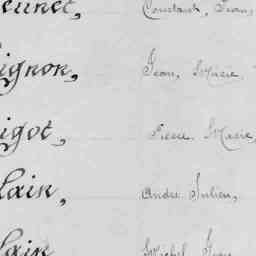 eunet, Constant, Jean,
ignon, Jean, Marie,
igot, Pierre, Marie,
lain, André Julien,
lain Michel Jean